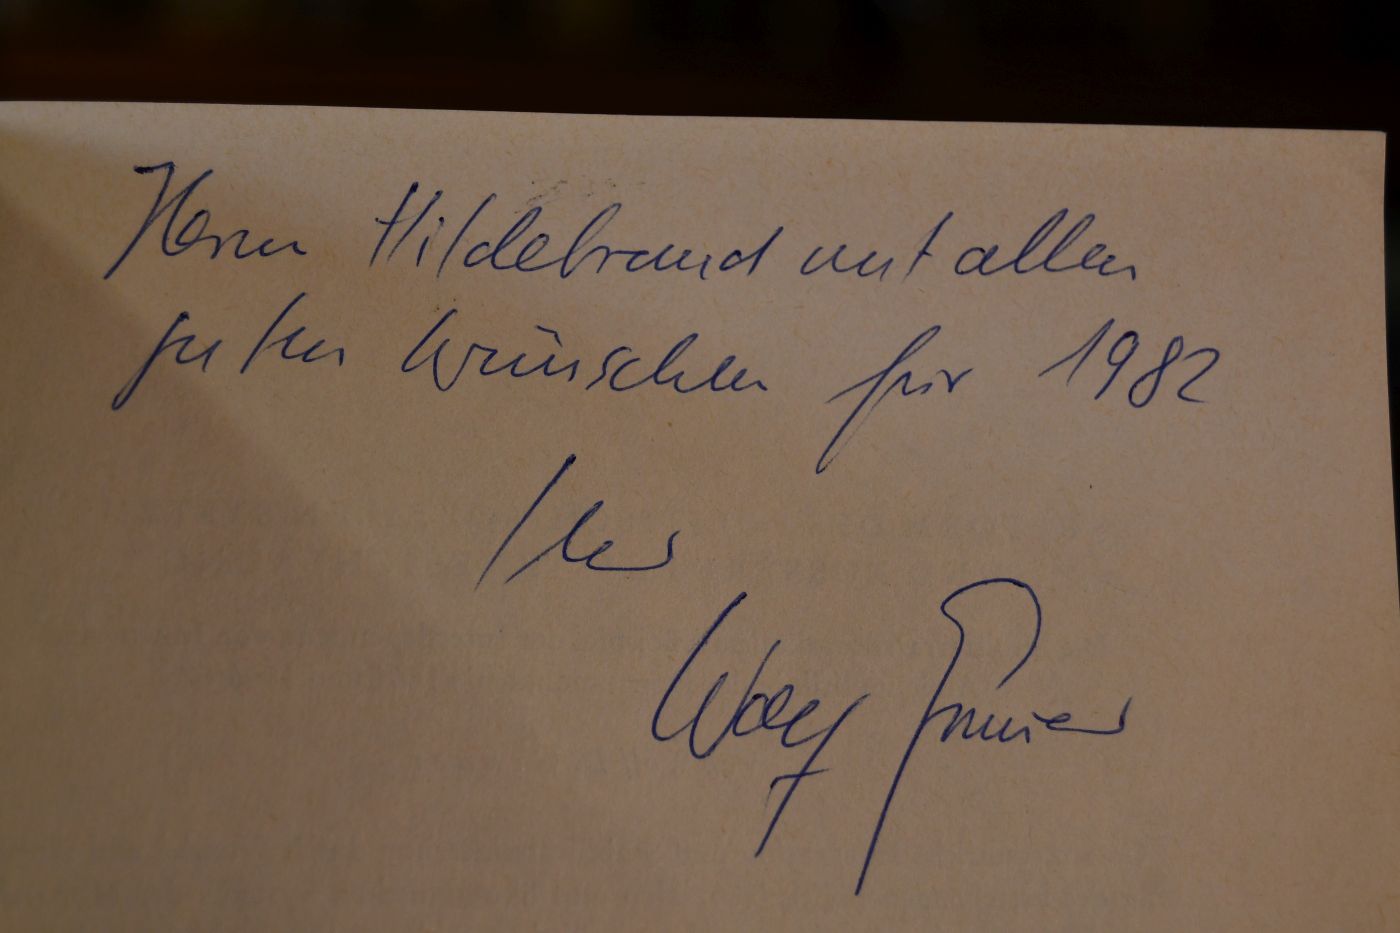 Herrn Hildebrand mit allen
guten Wünschen für 1982
Ihr
Wolf